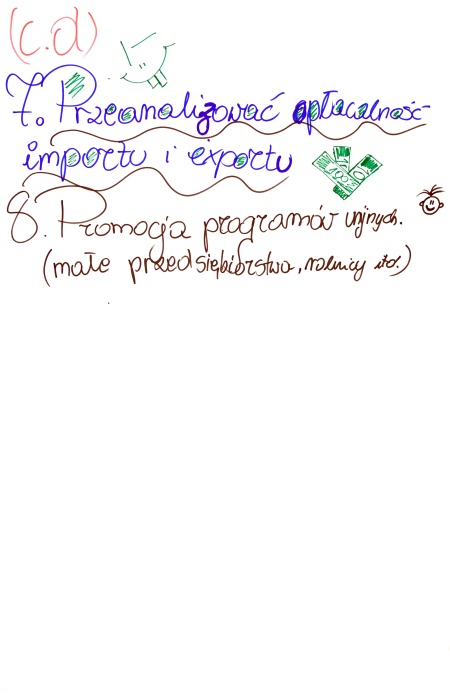 (c.d)
7. Przeanalizować opłacalność
importu i exportu
100
8. Promocja programów unijnych.
(małe przedsiębiorstwa, rolnicy itd.)